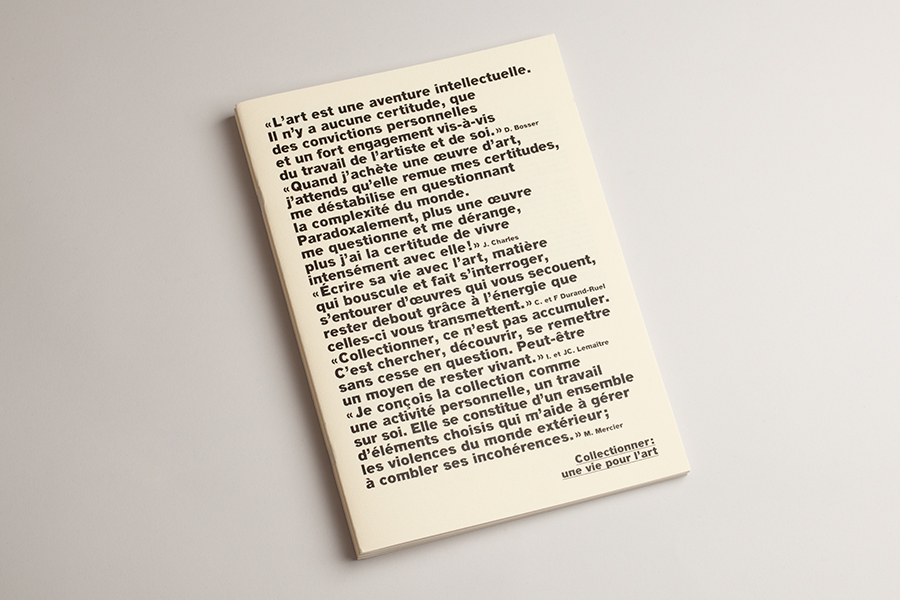 «L'art est une aventure intellectuelle.
Il n'y a aucune certitude, que
des convictions personnelles
et un fort engagement vis-à-vis
du travail de l'artiste et de soi.» D. Bosser
«Quand j'achète une œuvre d'art,
j'attends qu'elle remue mes certitudes,
me déstabilise en questionnant
la complexité du monde.
Paradoxalement, plus une œuvre
me questionne et me dérange,
plus j'ai la certitude de vivre
intensément avec elle!» J. Charles
«Écrire sa vie avec l'art, matière
qui bouscule et fait s'interroger,
s'entourer d'œuvres qui vous secouent,
rester debout grâce à l'énergie que
celles-ci vous transmettent.» C. et F Durand-Ruel
«Collectionner, ce n'est pas accumuler.
C'est chercher, découvrir, se remettre
sans cesse en question. Peut-être
un moyen de rester vivant.» I. et JC. Lemaître
«Je conçois la collection comme
une activité personnelle, un travail
sur soi. Elle se constitue d'un ensemble
d'éléments choisis qui m'aide à gérer
les violences du monde extérieur;
à combler ses incohérences.» M. Mercier
Collectionner:
une vie pour l'art